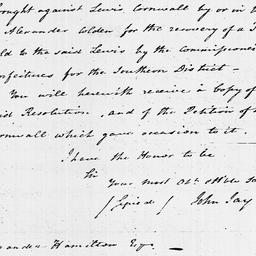 ought against Lewis Cornwall by or in
Alexander Colden for the recovery of a
ld to the said Lewis by the Commissione
onfeitures for the Southern District —
You will herewith receive a Copy of
id Resolution, and of the Petition of
ornwall which gave occasion to it.
I have the Honor to be
Sir
Your most Obt. Hble
(Signed) John Jay
xander Hamilton Esqr.